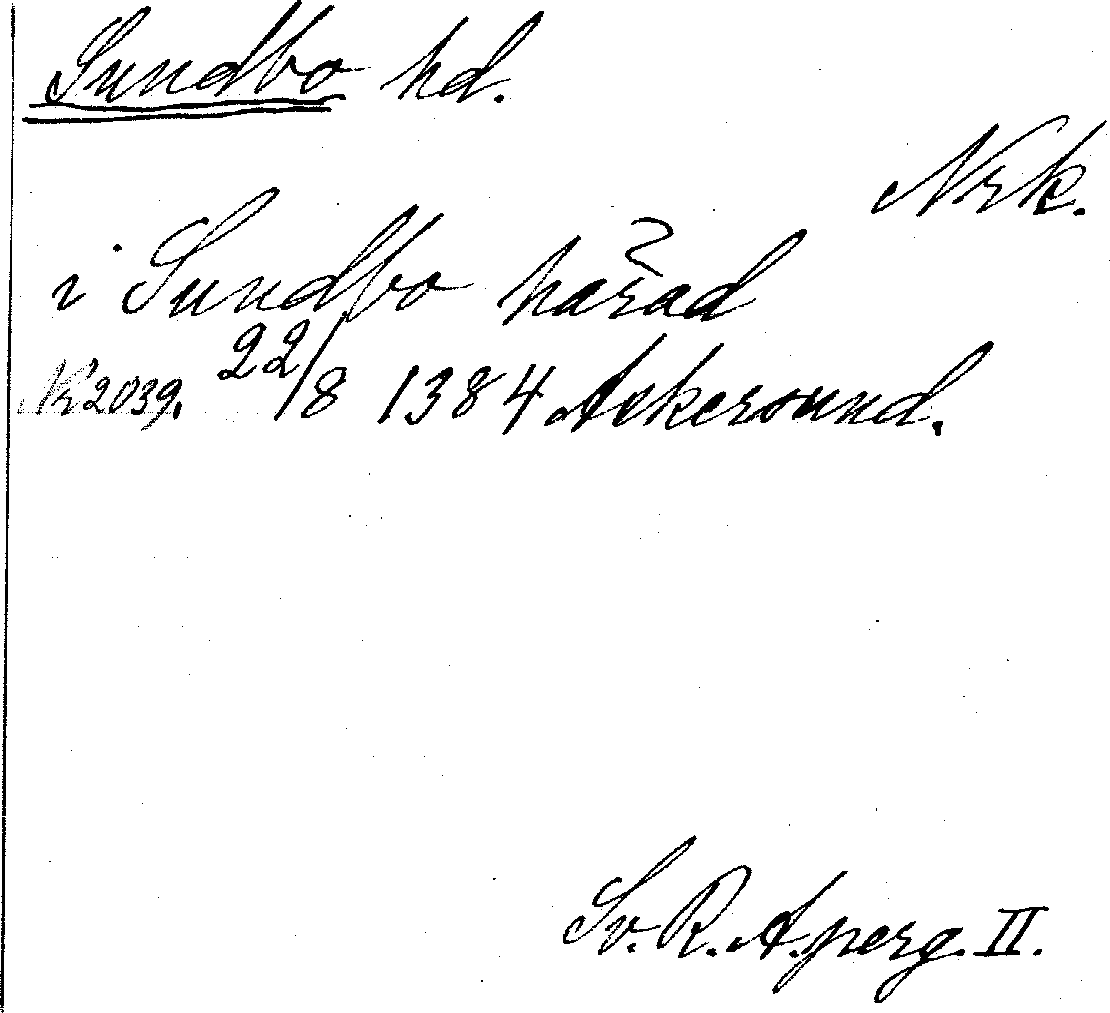 Sundbo hd.
Nrk.
i Sundbo harad
NR 2039. 22/8 1384 Askersund.
Sv. R. A. perg. II.